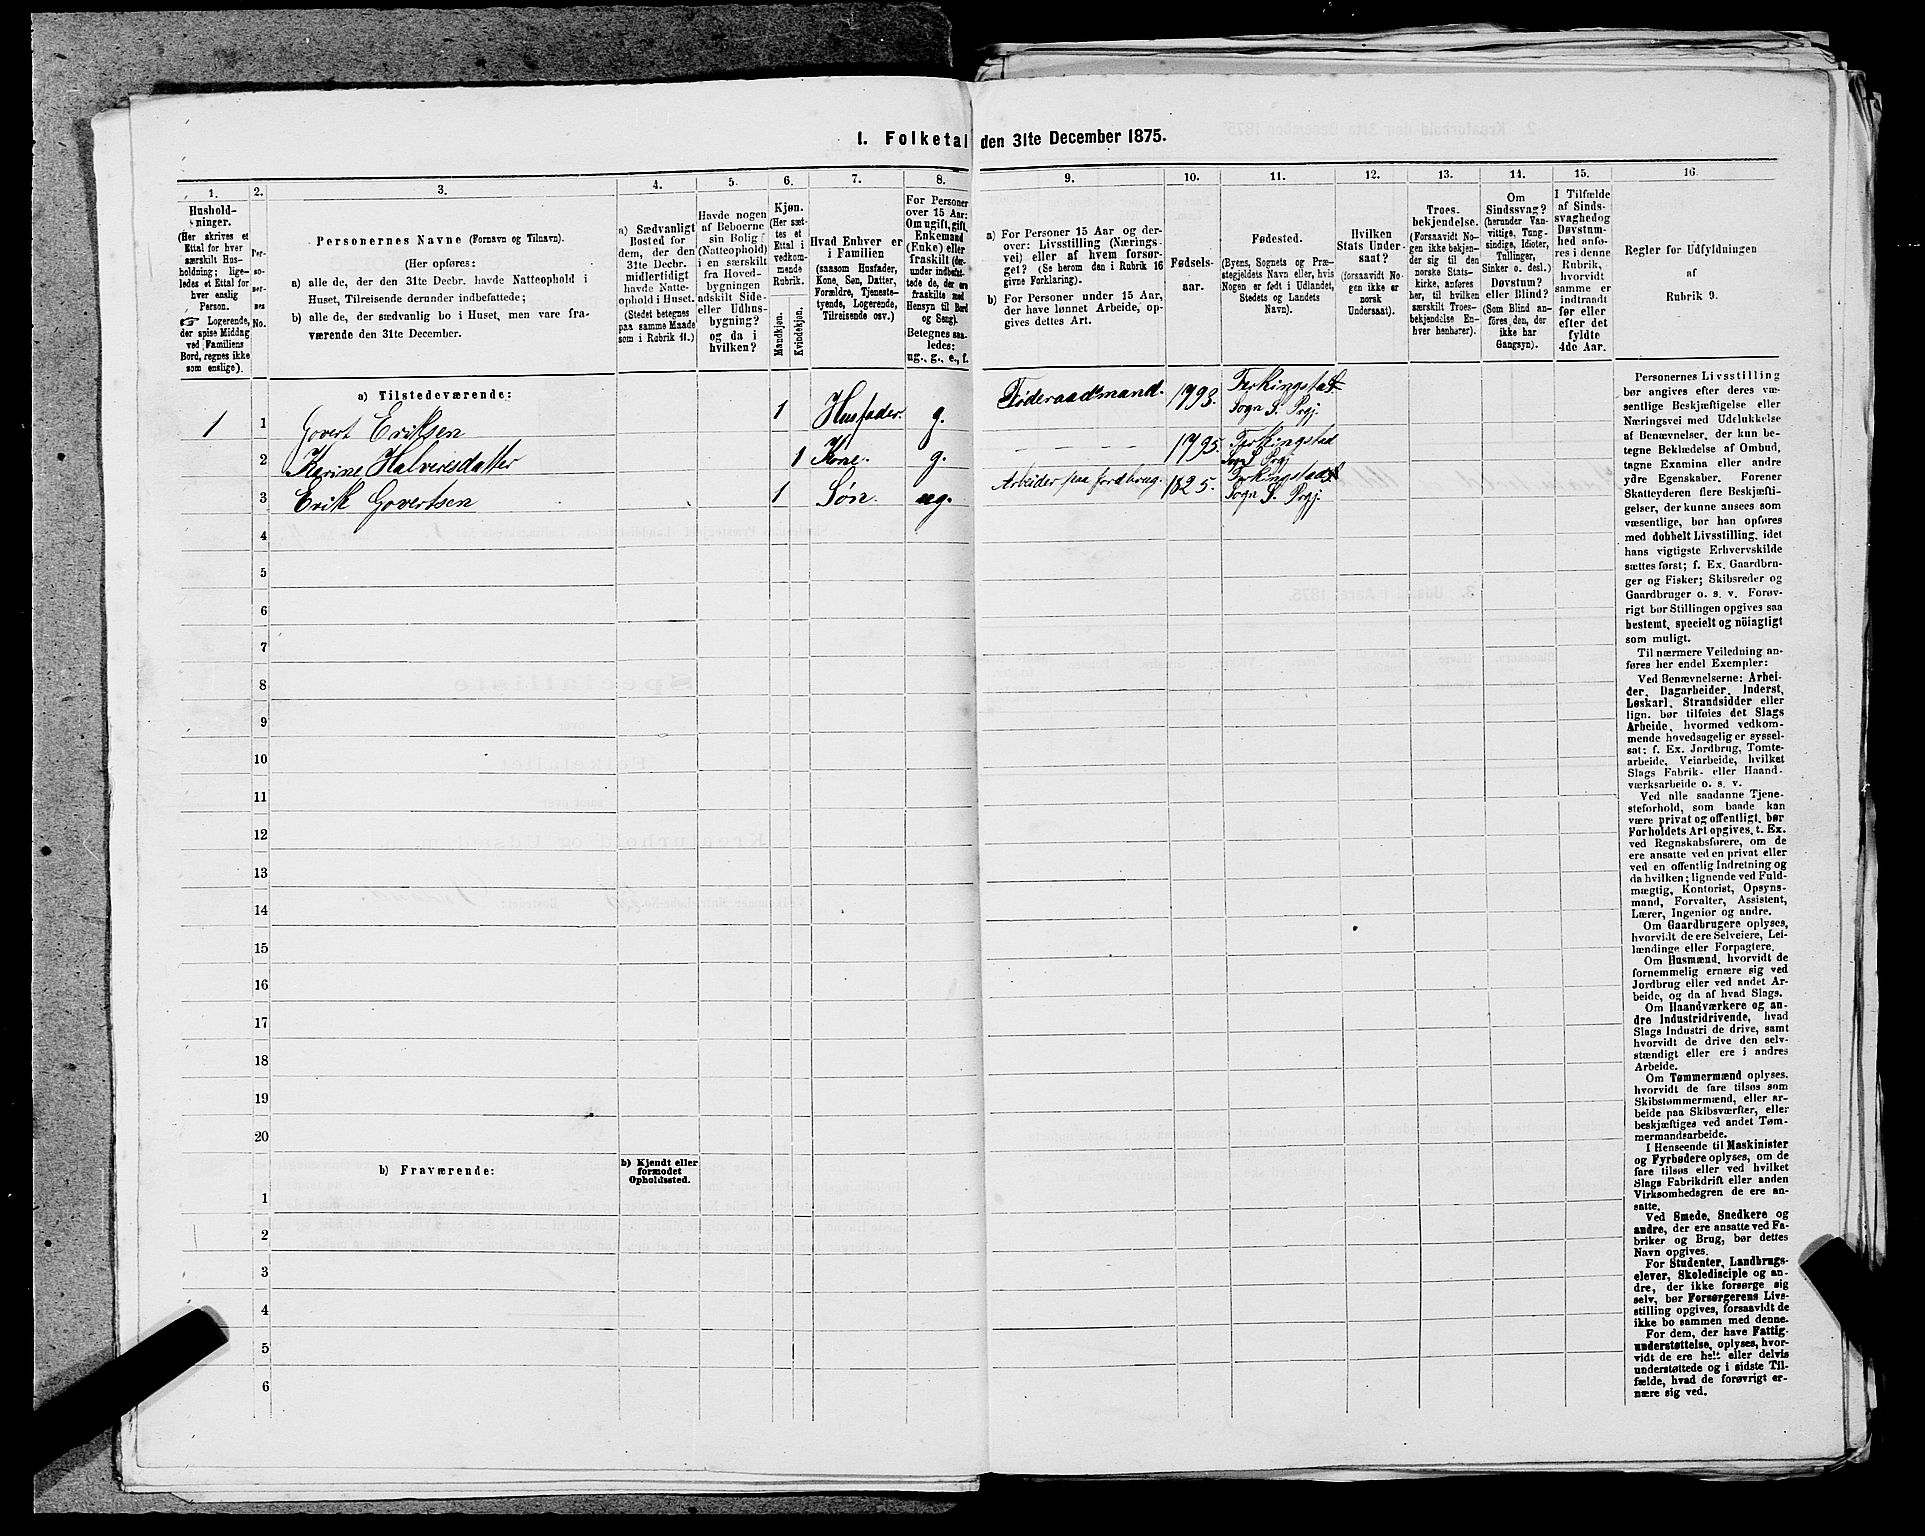 1. Folketal den 31te December 1875.
1.
2.
3.
4.
5.
6.
7.
8.
9.
10.
11.
12.
13.
14.
15.
16.
Hushold-
ninger.
(Her skrives et
Ettal for hver
særskilt Hus-
holdning; lige-
ledes et Ettal for
hver enslig
Person.
☞ Logerende,
der spise Middag
ved Familiens
Bord, regnes ikke
som enslige).
Per-
so-
ner-
nes
No.
Personernes Navne (Fornavn og Tilnavn).
(Her opføres:
a) alle de, der den 31te Decbr. havde Natteophold i
Huset, Tilreisende derunder indbefattede;
b) alle de, der sædvanlig bo i Huset, men vare fra-
værende den 31te December.
a) Sædvanligt
Bosted for
dem, der den
31te Decbr.
midlertidigt
havde Natte-
ophold i Huset.
(Stedet betegnes
paa samme Maade
som i Rubrik 11.)
Havde nogen
af Beboerne
sin Bolig
(Natteophold)
i en særskilt
fra Hoved-
bygningen
adskilt Side-
eller Udhus-
bygning?
og da i
hvilken?
Kjøn.
(Her sæt-
tes et
Ettal i
vedkom-
mende
Rubrik.
Mandkjøn.
Kvindekjøn.
Hvad Enhver er
i Familien
(saasom Husfader,
Kone, Søn, Datter,
Forældre, Tjeneste-
tyende, Logerende,
Tilreisende osv.)
For Personer
over 15 Aar:
Om ugift, gift,
Enkemand
(Enke) eller
fraskilt (der-
under indbefat-
tede de, der ere
fraskilte med
Hensyn til Bord
og Seng).
Betegnes saa-
ledes:
ug., g., e., f.
a) For Personer 15 Aar og der-
over: Livsstilling (Nærings-
vei) eller af hvem forsør-
get? (Se herom den i Rubrik 16
givne Forklaring).
b) For Personer under 15 Aar,
der have lønnet Arbeide, op-
gives dettes Art.
Fødsels-
aar.
Fødested.
(Byens, Sognets og Præ-
stegjeldets Navn eller, hvis
Nogen er født i Udlandet,
Stedets og Landets
Navn).
Hvilken
Stats Under-
saat?
(forsaavidt No-
gen ikke er
norsk
Undersaat).
Troes-
bekjendelse.
(Forsaavidt No-
gen ikke bekjen-
der sig til den
norske Stats-
kirke, anføres
her, til hvilken
særskilt Troes-
bekjendelse En-
hver henhører).
Om
Sindssvag?
(herunder Van-
vittige, Tung-
sindige, Idioter,
Tullinger,
Sinker o. desl.)
Døvstum?
eller Blind?
(Som Blind an-
føres den, der
ikke har
Gangsyn).
I Tilfælde
af Sinds-
svaghed og
Døvstum-
hed anfø-
res i denne
Rubrik,
hvorvidt
samme er
indtraadt
før eller
efter det
fyldte
4de Aar.
Regler for Udfyldningen
af
Rubrik 9.
a) Tilstedeværende:
1 1 Govert Eriksen 1 Husfader. g. Føderaadmand. 1793. Ferkingstad
Sogn S. Prgj.
2 Karine Halversdatter 1 Kone. g. 1795. Ferkingstad
Sogn S. Prgj.
3 Erik Govertsen 1 Søn. ug. Arbeider paa Jordbrug. 1825. Ferkingstad
Sogn S. Prgj.
4
5
6
7
8
9
10
11
12
13
14
15
16
17
18
19
20
b) Fraværende:
b) Kjendt eller
formodet
Opholdssted.
1
2
3
4
5
6
Personernes Livsstilling
bør angives efter deres væ-
sentlige Beskjæftigelse eller
Næringsvei med Udelukkelse
af Benævnelser, der kun be-
tegne Beklædelse af Ombud,
tagne Examina eller andre
ydre Egenskaber. Forener
Skatteyderen flere Beskjæfti-
gelser, der kunne ansees som
væsentlige, bør han opføres
med dobbelt Livsstilling, idet
hans vigtigste Erhvervskilde
sættes først; f. Ex. Gaardbru-
ger og Fisker; Skibsreder og
Gaardbruger o. s. v. Forøv-
rigt bør Stillingen opgives saa
bestemt, specielt og nöiagtigt
som muligt.
Til nærmere Veiledning an-
føres her endel Exempler:
Ved Benævnelserne: Arbei-
der, Dagarbeider, Inderst,
Løskarl, Strandsidder eller
lign. bør tilføies det Slags
Arbeide, hvormed vedkom-
mende hovedsagelig er syssel-
sat; f. Ex. Jordbrug, Tomte-
arbeide, Veiarbeide, hvilket
Slags Fabrik- eller Haand-
værksarbeide o. s. v.
Ved alle saadanne Tjene-
steforhold, som baade kan
være privat og offentligt, bør
Forholdets Art opgives, t. Ex.
ved Regnskabsførere, om de
ere ansatte ved en privat eller
ved en offentlig Indretning og
da hvilken; lignende ved Fuld-
mægtig, Kontorist, Opsyns-
mand, Forvalter, Assistent,
Lærer, Ingeniør og andre.
Om Gaardbrugere oplyses,
hvorvidt de ere Selveiere, Lei-
lændinge eller Forpagtere.
Om Husmænd, hvorvidt de
fornemmelig ernære sig ved
Jordbrug eller ved andet Ar-
beide, og da af hvad Slags.
Om Haandværkere og an-
dre Industridrivende, hvad
Slags Industri de drive, samt
hvorvidt de drive den selv-
stændigt eller ere i andres
Arbeide.
Om Tømmermænd oplyses,
hvorvidt de fare tilsøs som
Skibstømmermænd, eller ar-
beide paa Skibsværfter, eller
beskjæftiges ved andet Tøm-
mermandsarbeide.
I Henseende til Maskinister
og Fyrbødere oplyses, om de
fare tilsøs eller ved hvilket
Slags Fabrikdrift eller anden
Virksomhedsgren de ere an-
satte.
Ved Smede, Snedkere og
andre, der ere ansatte ved Fa-
briker og Brug, bør dettes
Navn opgives.
For Studenter, Landbrugs-
elever, Skoledisciple og an-
dre, der ikke forsørge sig
selv, bør Forsørgerens Livs-
stilling opgives, forsaavidt de
ikke bo sammen med denne.
For dem, der have Fattig-
understøttelse, oplyses, hvor-
vidt de ere helt eller delvis
understøttede og i sidste Til-
fælde, hvad de forøvrigt er-
nære sig ved.